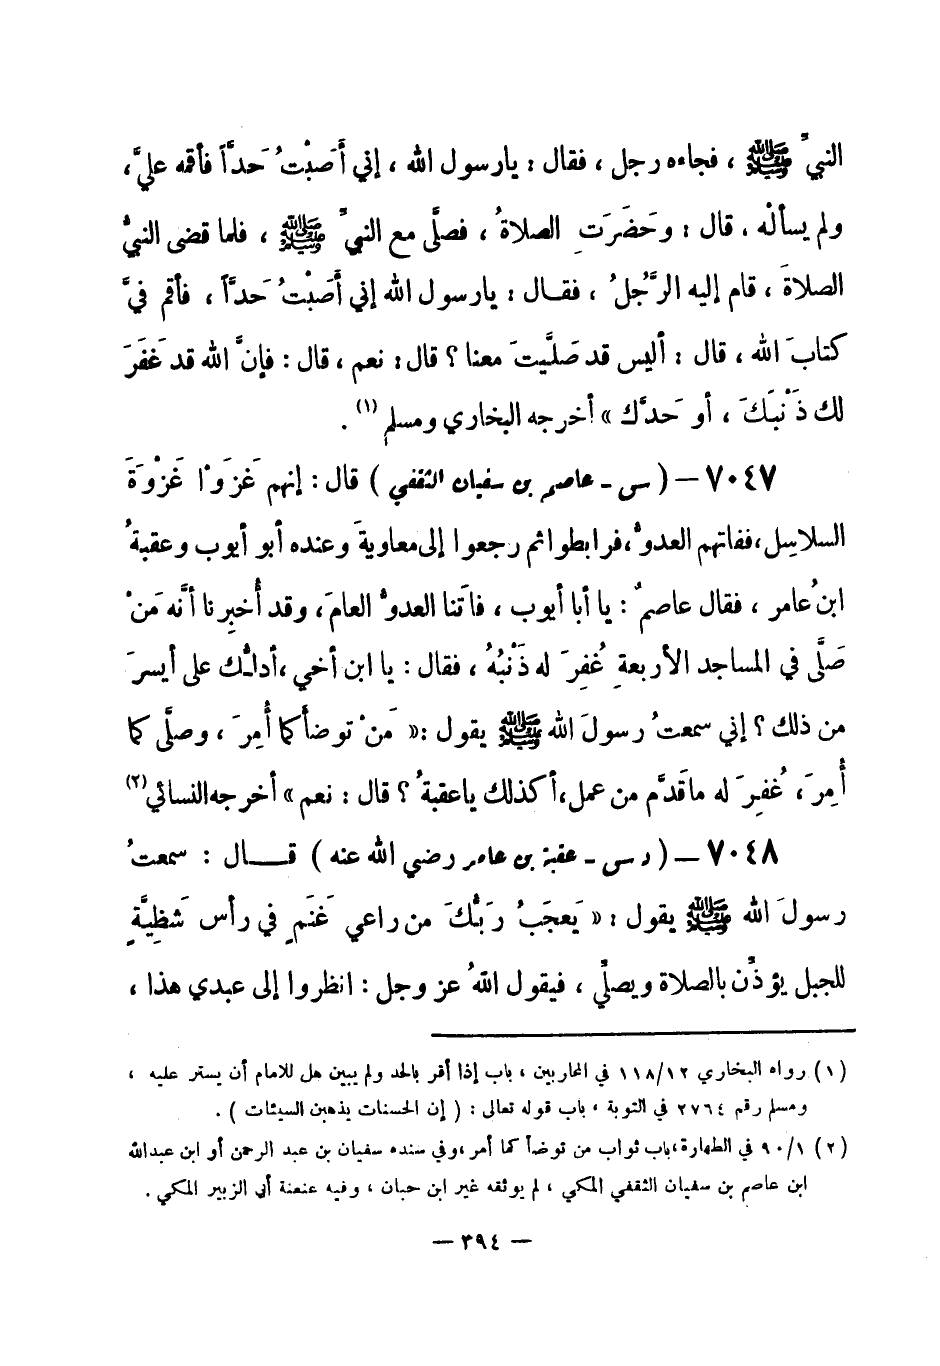 النبيِّ ﷺ ، فجاءه رجل ، فقال : يارسول الله ، إني أَصَبْتُ حَدَّاً فأقمه عليَّ ،
ولم يسألْه . قال : وحَضَرَتِ الصلاةُ ، فصلَّى مع النبيِّ ﷺ ، فلما قضى النبيُّ
الصلاةَ ، قام إليه الرَّجُلُ ، فقال : يارسول الله إني أَصَبْتُ حَدَّاً ، فأقم فيَّ
كتابَ الله ، قال : أليس قد صَلَّيتَ معنا ؟ قال : نعم ، قال : فإنَّ الله قد غَفَرَ
لك ذَنْبَكَ ، أو حَدَّك » أخرجه البخاري ومسلم (١) .
٧٠٤٧ – ( س - عاصم بن سفيان الثقفي ) قال : إنهم غَزَوْا غَزْوَةَ
السلاسِل ، ففاتهم العدوُّ ، فرابطوا ثم رجعوا إلى معاويةَ وعنده أبو أيوب وعقبةُ
ابنُ عامر ، فقال عاصمٌ : يا أبا أيوب ، فاتَنا العدوُّ العامَ ، وقد أُخبِرنا أنَّه مَنْ
صَلَّى في المساجد الأربعةِ غُفِرَ له ذَنْبُهُ ، فقال : يا ابن أخي ، أدلُّك على أيسرَ
من ذلك ؟ إني سمعتُ رسولَ الله ﷺ يقول : « مَنْ توضأ كما أُمِرَ ، وصلَّى كما
أُمِرَ ، غُفِرَ له ما قدَّم من عمل ، أكذلك ياعقبةُ ؟ قال : نعم » أخرجه النسائي (٢)
٧٠٤٨ – ( د س - عقبة بن عامر رضي الله عنه ) قال : سمعتُ
رسولَ الله ﷺ يقول : « يَعجَبُ رَبُّكَ من راعي غَنَمٍ في رأس شَظِيَّةٍ
للجبل يؤذِّن بالصلاة ويصلِّي ، فيقول اللهُ عز وجل : انظروا إلى عبدي هذا ،
(١) رواه البخاري ١١٨/١٢ في المحاربين ، باب إذا أقر بالحد ولم يبين هل للامام أن يستر عليه ،
ومسلم رقم ٢٧٦٤ في التوبة ، باب قوله تعالى : ( إن الحسنات يذهبن السيئات ) .
(٢) ٩٠/١ في الطهارة ، باب ثواب من توضأ كما أمر ، وفي سنده سفيان بن عبد الرحمن أو ابن عبدالله
ابن عاصم بن سفيان الثقفي المكي ، لم يوثقه غير ابن حبان ، وفيه عنعنة أبي الزبير المكي .
– ٣٩٤ –